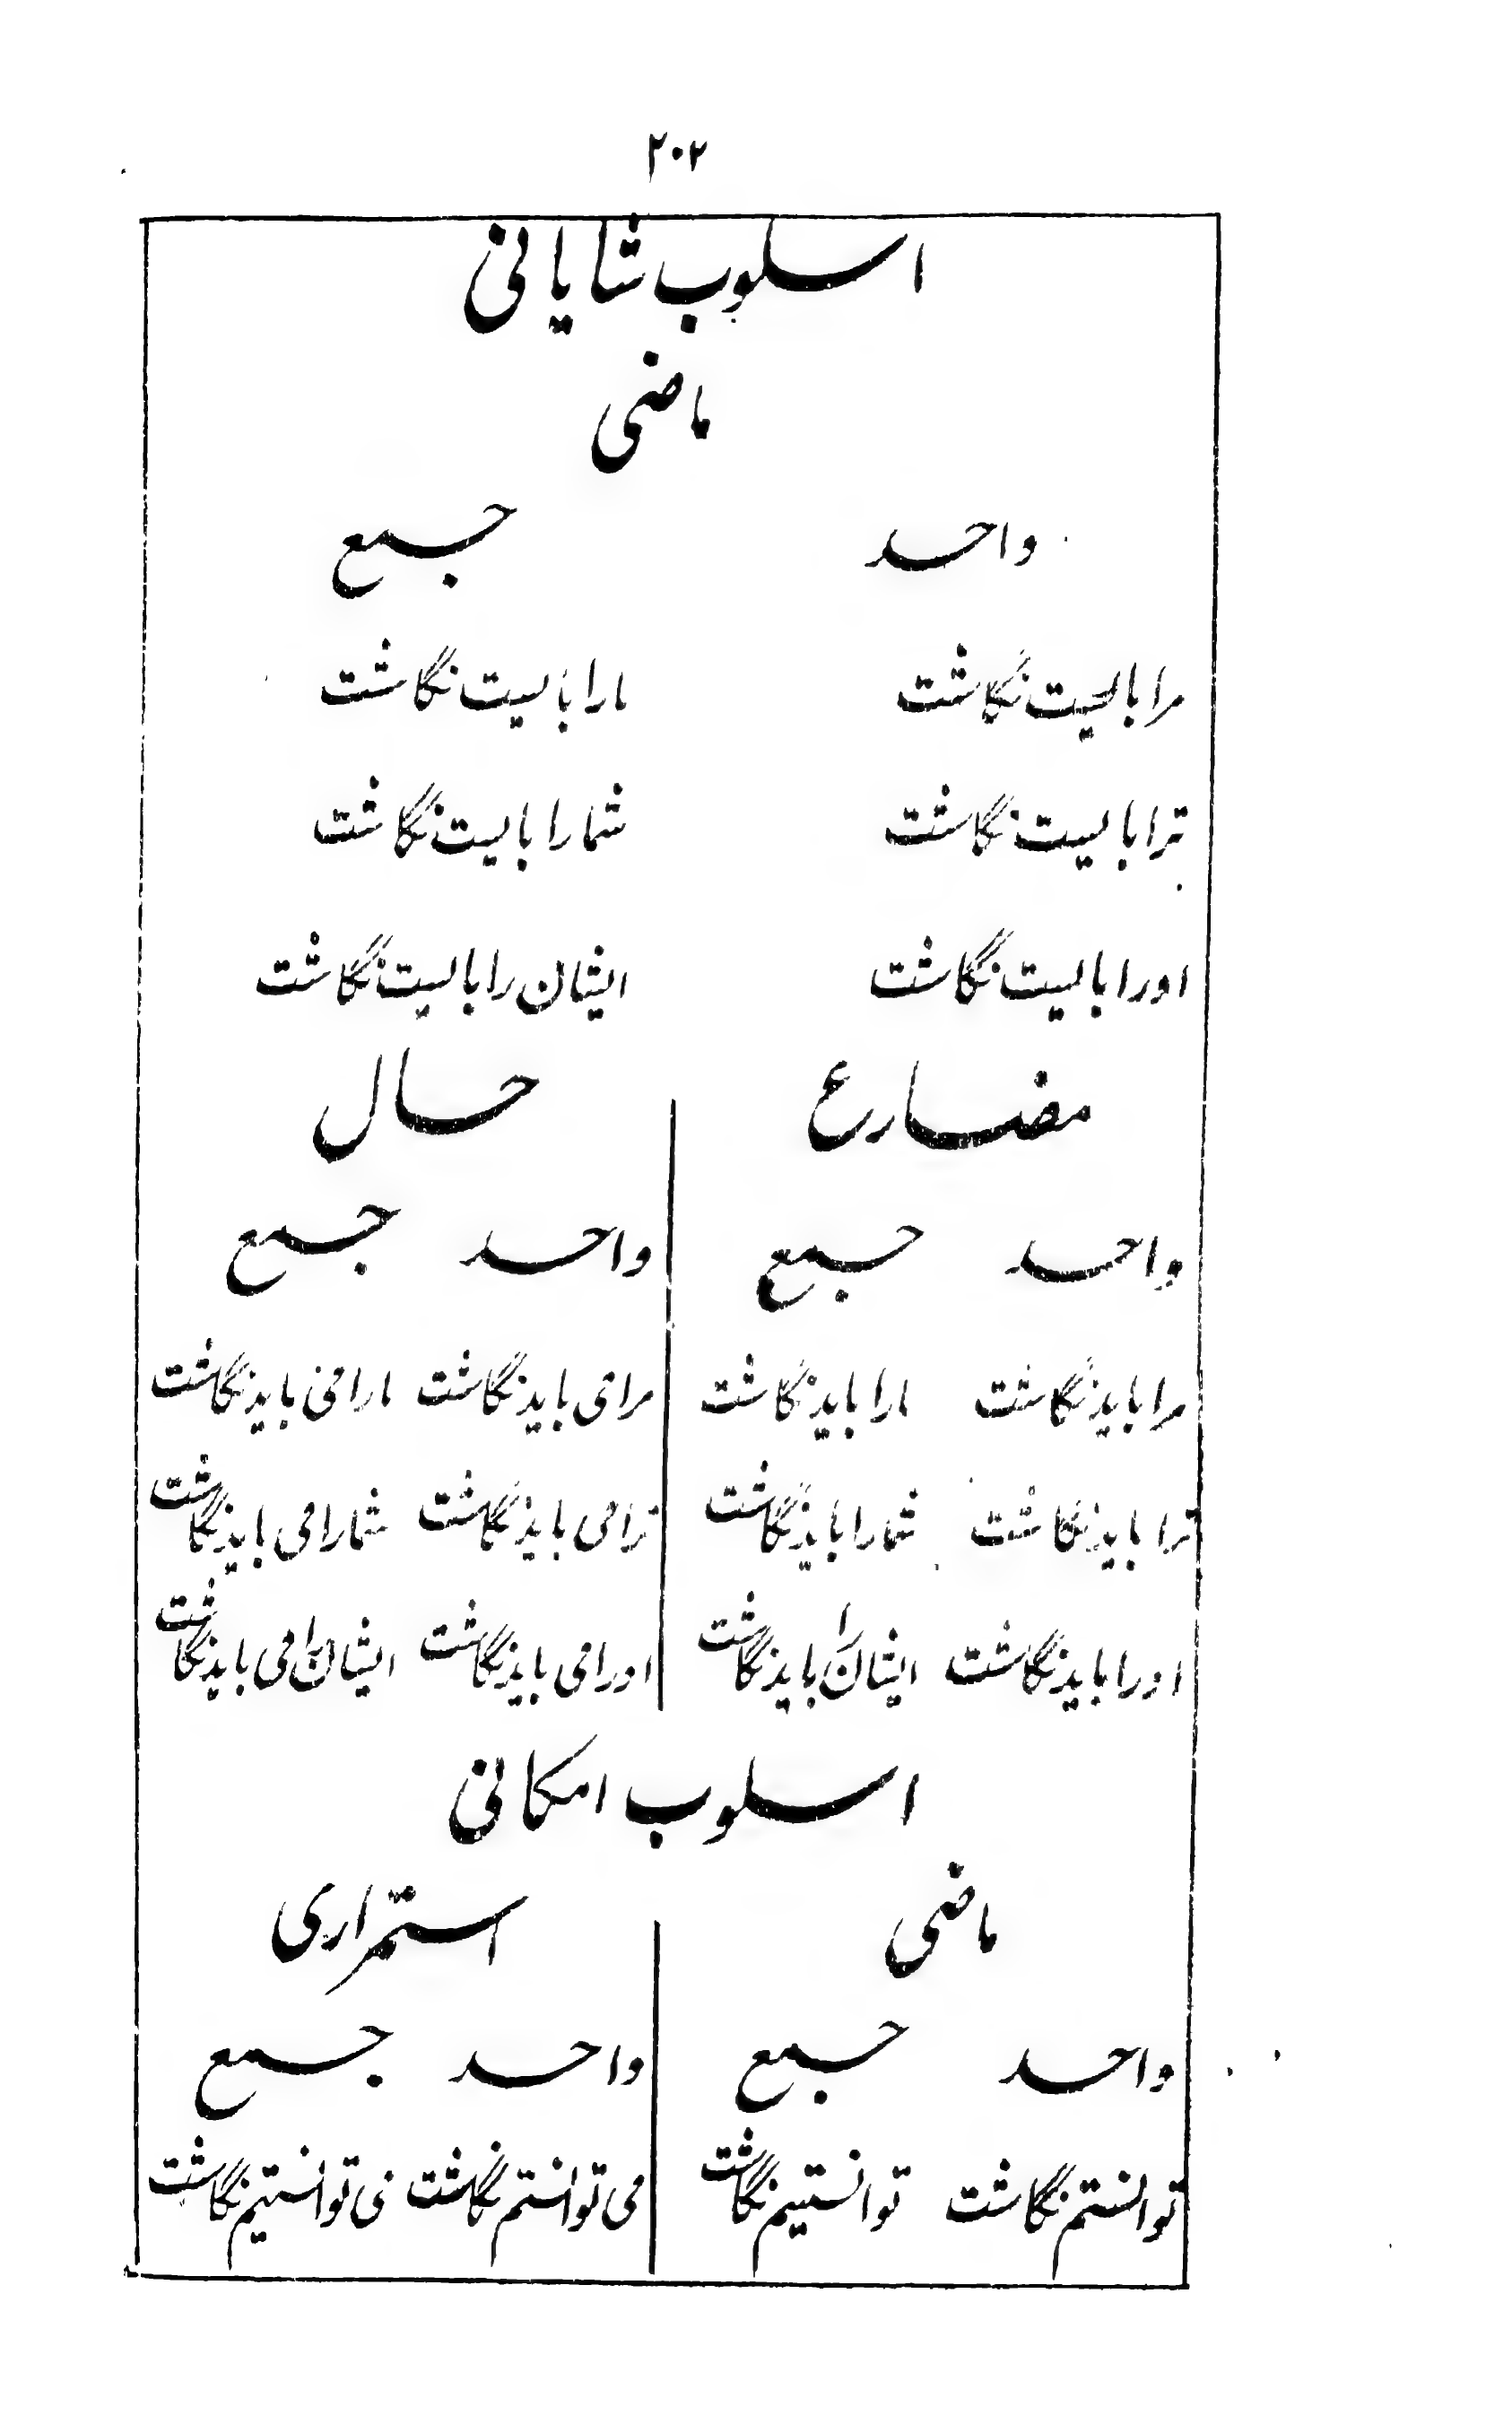 ۲۰۲
اسلوب شایانی
ماضی
واحد جمع
مرا بایست نگاشت مارا بایست نگاشت
ترا بایست نگاشت شمارا بایست نگاشت
اورا بایست نگاشت ایشان را بایست نگاشت
مضارع حال
واحد جمع واحد جمع
مرا باید نگاشت مارا باید نگاشت مرا می باید نگاشت مارا می باید نگاشت
ترا باید نگاشت شمارا باید نگاشت ترا می باید نگاشت شمارا می باید نگاشت
اورا باید نگاشت ایشان را باید نگاشت اورا می باید نگاشت ایشان را می باید نگاشت
اسلوب امکانی
ماضی استمراری
واحد جمع واحد جمع
توانستم نگاشت توانستیم نگاشت می توانستم نگاشت می توانستیم نگاشت